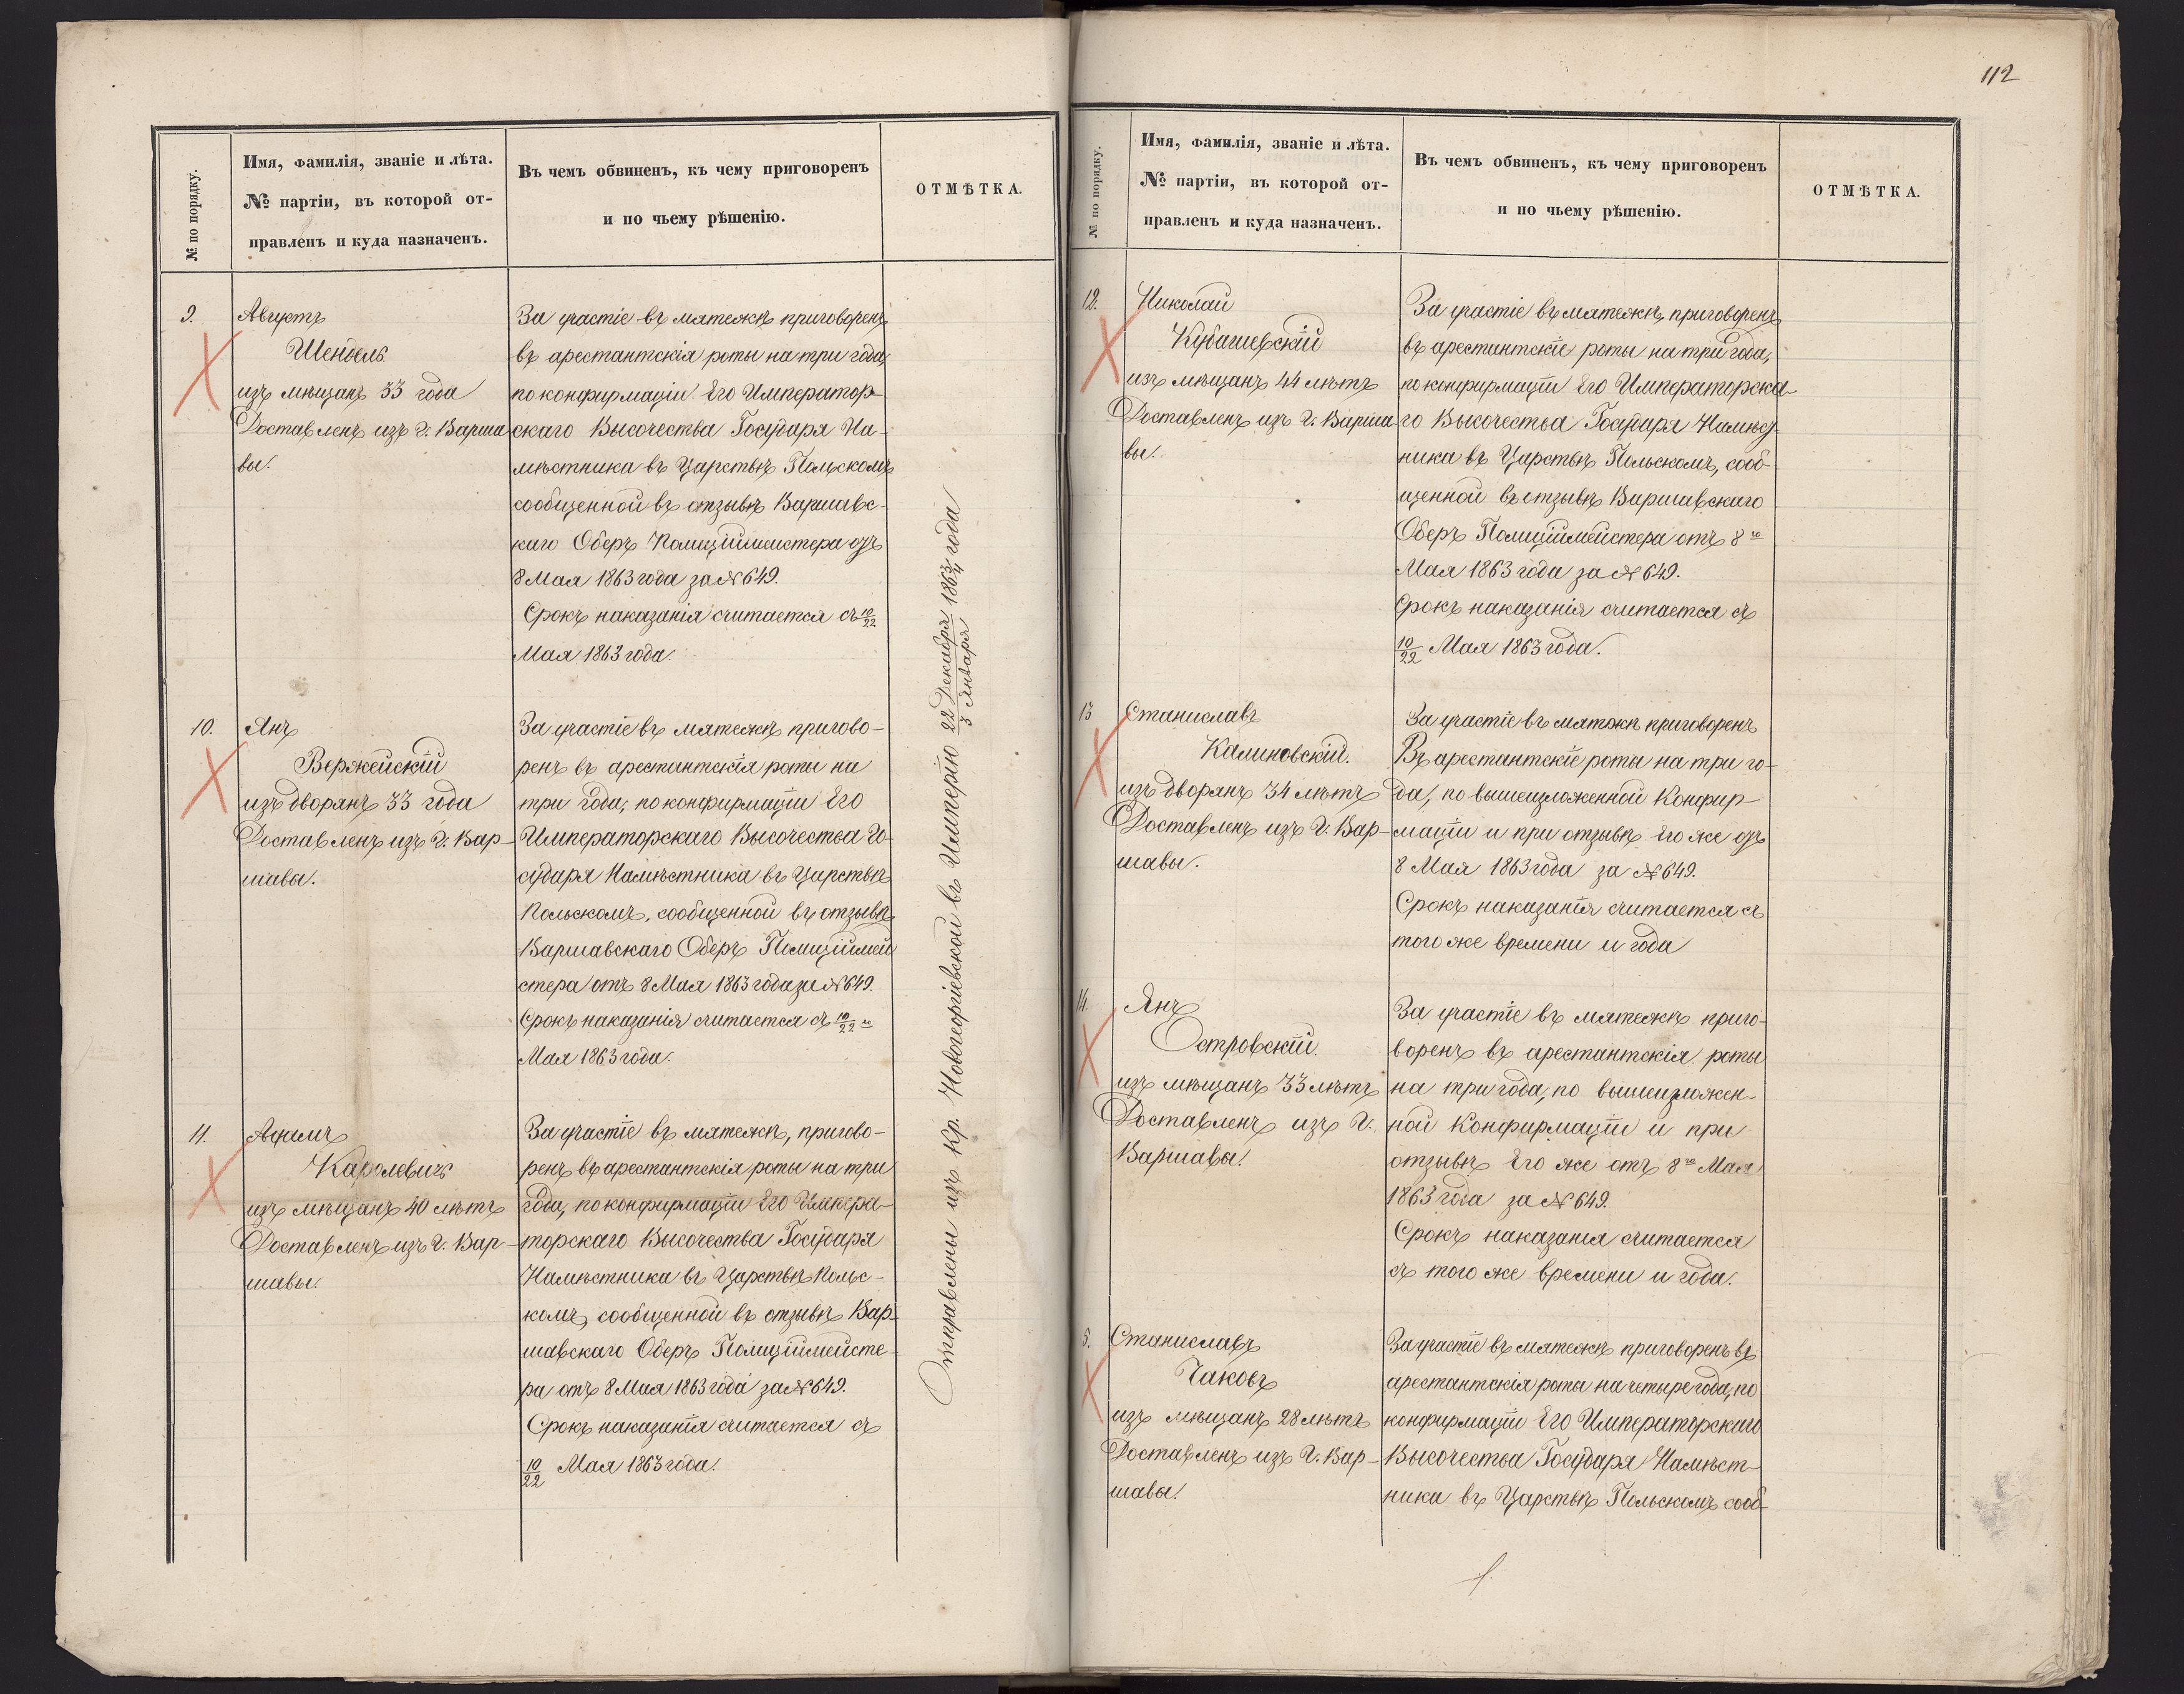 112
№ по порядку.
Имя, фамилія, званіе и лѣта.
№ партіи, въ которой от-
правленъ и куда назначенъ.
Въ чемъ обвиненъ, къ чему приговоренъ
и по чьему рѣшенію.
ОТМѢТКА.
9.
Августъ
Шендель
изъ мѣщанъ 33 года
Доставленъ изъ г. Варша
вы.
За участіе въ мятежѣ приговоренъ
въ арестантскія роты на три года,
по конфирмаціи Его Император-
скаго Высочества Государя На-
мѣстника въ Царствѣ Польскомъ
сообщенной въ отзывѣ Варшавс-
каго Оберъ Полиціймейстера отъ
8 Мая 1863 года за № 649.
Срокъ наказанія считается съ 10/22
Мая 1863 года.
10.
Янъ
Вержейскій
изъ дворянъ 33 года
Доставленъ изъ г. Вар-
шавы.
За участіе въ мятежѣ пригово-
ренъ въ арестантскія роты на
три года, по конфирмаціи Его
Императорскаго Высочества Го-
сударя Намѣстника въ Царствѣ
Польскомъ, сообщенной въ отзывѣ
Варшавскаго Оберъ Полиціймей
стера отъ 8 Мая 1863 года за № 649.
Срокъ наказанія считается съ 10/22 го
Мая 1863 года.
11.
Адамъ
Каролевичъ
изъ мѣщанъ 40 лѣтъ
Доставленъ изъ г. Вар-
шавы.
За участіе въ мятежѣ, пригово-
ренъ въ арестантскія роты на три
года, по конфирмаціи Его Импера-
торскаго Высочества Государя
Намѣстника въ Царствѣ Польс-
комъ, сообщенной въ отзывѣ Вар-
шавскаго Оберъ Полиціймейсте-
ра отъ 8 Мая 1863 года за № 649.
Срокъ наказанія считается съ
10/22 Мая 1863 года.
Отправлены изъ Кр. Новогеоргіевской въ Имперію 22 Декабря/3 Января 1863/4 года
№ по порядку.
Имя, фамилія, званіе и лѣта.
№ партіи, въ которой от-
правленъ и куда назначенъ.
Въ чемъ обвиненъ, къ чему приговоренъ
и по чьему рѣшенію.
ОТМѢТКА.
12.
Николай
Кубашевскій
изъ мѣщанъ 44 лѣтъ
Доставленъ изъ г. Варша-
вы.
За участіе въ мятежѣ, приговоренъ
въ арестантскіе роты на три года,
по конфирмаціи Его Императорска-
го Высочества Государя Намѣст
ника въ Царствѣ Польскомъ, сооб-
щенной въ отзывѣ Варшавскаго
Оберъ Полиціймейстера отъ 8 го
Мая 1863 года за № 649.
Срокъ наказанія считается съ
10/22 Мая 1863 года.
13
Станиславъ
Калиновскій.
изъ дворянъ 34 лѣтъ
Доставленъ изъ г. Вар-
шавы.
За участіе въ мятежѣ приговоренъ
Въ арестантскіе роты на три го-
да, по вышеизложенной Конфир-
маціи и при отзывѣ Его же отъ
8 Мая 1863 года за № 649.
Срокъ наказанія считается съ
того же времени и года
14.
Янъ
Островскій.
изъ мѣщанъ 33 лѣтъ
Доставленъ изъ г.
Варшавы.
За участіе въ мятежѣ приго-
воренъ въ арестантскія роты
на три года, по вышеизложен-
ной Конфирмаціи и при
отзывѣ Его же отъ 8 го Мая
1863 года за № 649.
Срокъ наказанія считается
съ того же времени и года.
5.
Станиславъ
Чаковъ
изъ мѣщанъ 28 лѣтъ
Доставленъ изъ г. Вар-
шавы.
За участіе въ мятежѣ приговоренъ въ
арестантскія роты на четыре года, по
конфирмаціи Его Императорскаго
Высочества Государя Намѣст-
ника въ Царствѣ Польскомъ сооб-